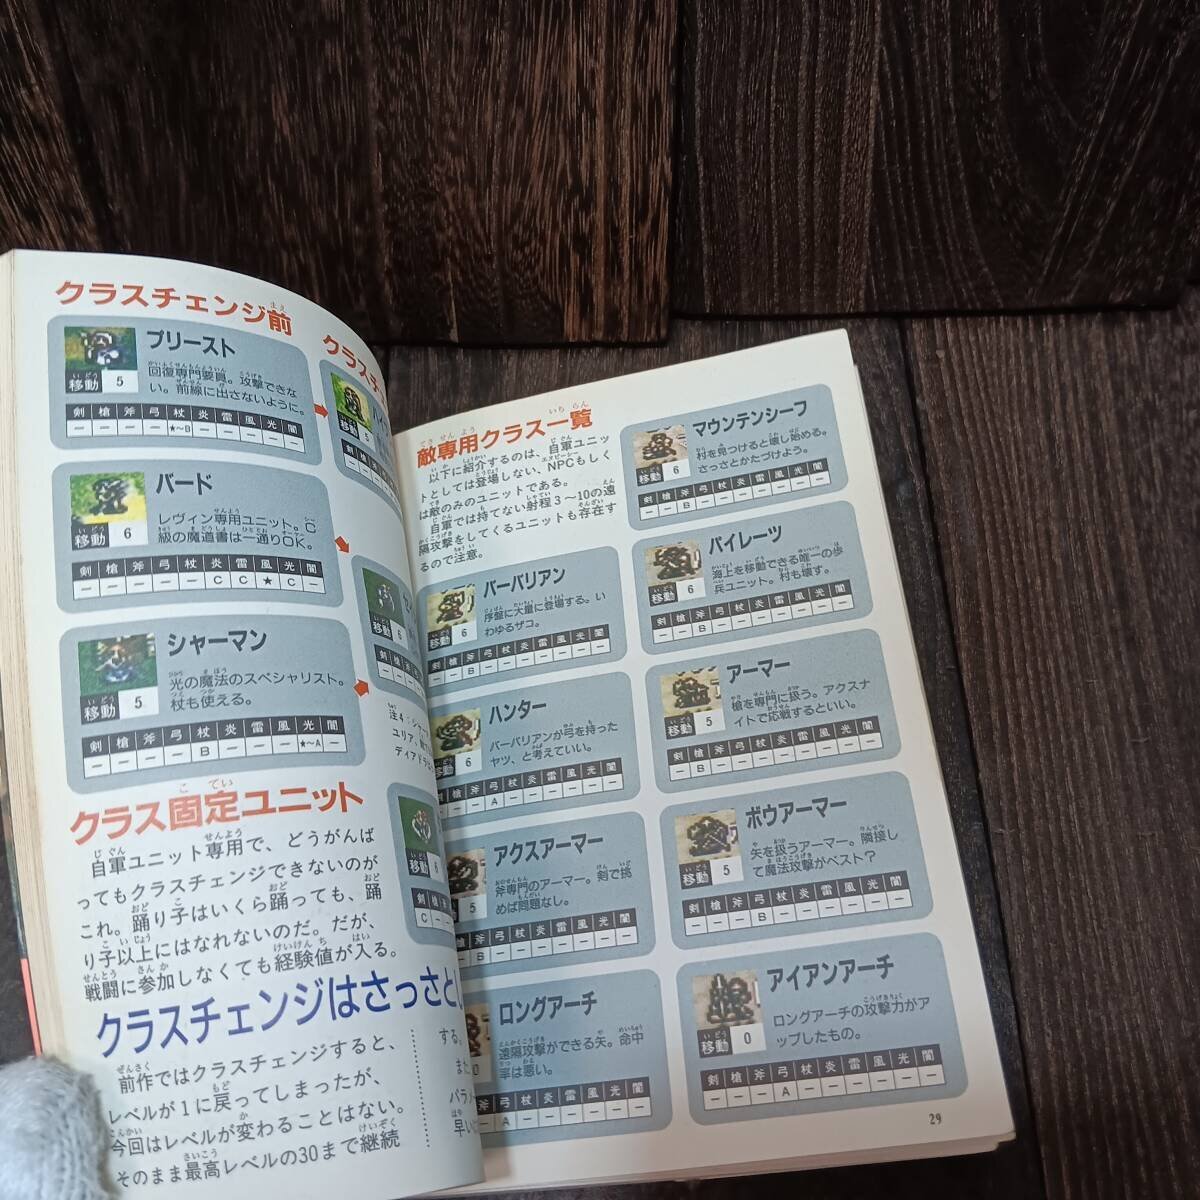 クラスチェンジ前
プリースト
回復専門要員。攻撃できな
い。前線に出さないように。
移動 5
剣 槍 斧 弓 杖 炎 雷 風 光 闇
ー ー ー ー ★〜B ー ー ー ー ー
バード
レヴィン専用ユニット。C
級の魔道書は一通りOK。
移動 6
剣 槍 斧 弓 杖 炎 雷 風 光 闇
ー ー ー ー ー C C ★ C ー
シャーマン
光の魔法のスペシャリスト。
杖も使える。
移動 5
剣 槍 斧 弓 杖 炎 雷 風 光 闇
ー ー ー ー B ー ー ー ★〜A ー
クラス固定ユニット
自軍ユニット専用で、どうがんば
ってもクラスチェンジできないのが
これ。踊り子はいくら踊っても、踊
り子以上にはなれないのだ。だが、
戦闘に参加しなくても経験値が入る。
クラスチェンジはさっさと
前作ではクラスチェンジすると、
レベルが1に戻ってしまったが、
今回はレベルが変わることはない。
そのまま最高レベルの30まで継続
クラスチ
移動 5
剣 槍
移動 6
剣 槍 斧
注4:シャー
ユリア、
ディアドラ
移動 6
剣 槍 斧
C ー
する。
また
パラメ
早い
敵専用クラス一覧
以下に紹介するのは、自軍ユニッ
トとしては登場しない、NPCもしく
は敵のみのユニットである。
自軍では持てない射程3〜10の遠
隔攻撃をしてくるユニットも存在す
るので注意。
バーバリアン
序盤に大量に登場する。い
わゆるザコ。
移動 6
剣 槍 斧 弓 杖 炎 雷 風 光 闇
ー ー B ー ー ー ー ー ー ー
ハンター
バーバリアンが弓を持った
ヤツ、と考えていい。
移動 6
剣 槍 斧 弓 杖 炎 雷 風 光 闇
ー ー ー A ー ー ー ー ー ー
アクスアーマー
斧専門のアーマー。剣で挑
めば問題なし。
5
斧 弓 杖 炎 雷 風 光 闇
B ー ー ー ー ー ー ー
ロングアーチ
遠隔攻撃ができる矢。命中
率は悪い。
0
斧 弓 杖 炎 雷 風 光 闇
ー A ー ー ー ー ー ー
マウンテンシーフ
村を見つけると壊し始める。
さっさとかたづけよう。
移動 6
剣 槍 斧 弓 杖 炎 雷 風 光 闇
ー ー B ー ー ー ー ー ー ー
パイレーツ
海上を移動できる唯一の歩
兵ユニット。村も壊す。
移動 6
剣 槍 斧 弓 杖 炎 雷 風 光 闇
ー ー B ー ー ー ー ー ー ー
アーマー
槍を専門に扱う。アクスナ
イトで応戦するといい。
移動 5
剣 槍 斧 弓 杖 炎 雷 風 光 闇
ー B ー ー ー ー ー ー ー ー
ボウアーマー
矢を扱うアーマー。隣接し
て魔法攻撃がベスト?
移動 5
剣 槍 斧 弓 杖 炎 雷 風 光 闇
ー ー ー B ー ー ー ー ー ー
アイアンアーチ
ロングアーチの攻撃力がア
ップしたもの。
移動 0
剣 槍 斧 弓 杖 炎 雷 風 光 闇
ー ー ー A ー ー ー ー ー ー
29